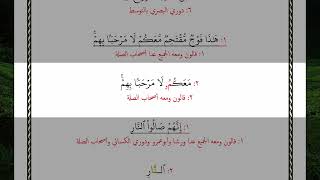 ٦: دوري البصري بالتوسط
١: هَٰذَا فَوْجٌ مُّقْتَحِمٌ مَّعَكُمْ لَا مَرْحَبًا بِهِمْ
١: قالون ومعه الجميع عدا أصحاب الصلة
٢: مَعَكُمُۥ لَا مَرْحَبًا بِهِمْ
٢: قالون ومعه أصحاب الصلة
١: إِنَّهُمْ صَالُوا۟ ٱلنَّارِ
١: قالون ومعه الجميع عدا ورشا وأبوعمرو ودوري الكسائي وأصحاب الصلة
٢: ٱلنَّارِ